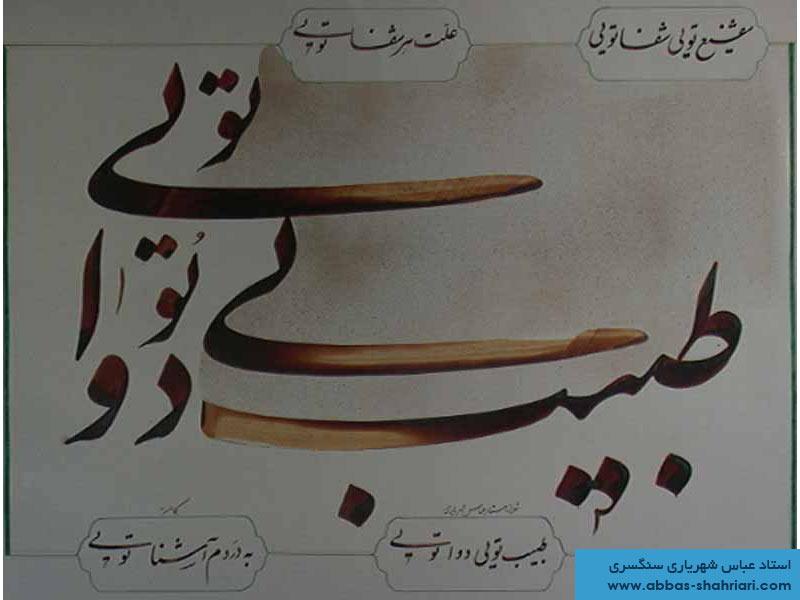 شفیع تویی شفا تویی
علت هر شفا تویی
طبیب تویی دوا تویی
طبیب تویی دوا تویی
به دردم آشنا تویی
استاد عباس شهریاری سنگسری
www.abbas-shahriari.com